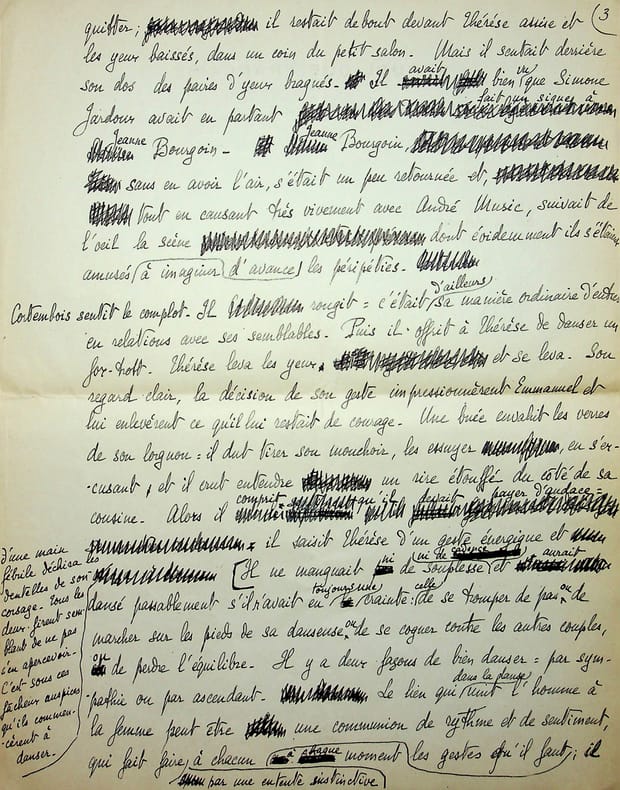 3
quitter; il restait debout devant Thérèse assise et
les yeux baissés, dans un coin du petit salon. Mais il sentait derrière
son dos des paires d'yeux braqués. Il avait bien vu que Simone
Jardoux avait en partant fait un signe à
Jeanne Bourgoin. Jeanne Bourgoin,
sans en avoir l'air, s'était un peu retournée et,
tout en causant très vivement avec André Music, suivait de
l'oeil la scène dont évidemment ils s'étaient
amusés à imaginer d'avance les péripéties.
Corbembois sentit le complot. Il rougit = c'était d'ailleurs sa manière ordinaire d'entrer
en relations avec ses semblables. Puis il offrit à Thérèse de danser un
fox-trott. Thérèse leva les yeux, et se leva. Son
regard clair, la décision de son geste impressionnèrent Emmanuel et
lui enlevèrent ce qu'il lui restait de courage. Une buée envahit les verres
de son lorgnon = il dut tirer son mouchoir, les essuyer, en s'ex-
-cusant, et il crut entendre un rire étouffé du côté de sa
cousine. Alors il comprit qu'il devait payer d'audace =
il saisit Thérèse d'un geste énergique et
d'une main
fébrile déchira les
dentelles de son
corsage. Tous les
deux firent sem-
blant de ne pas
s'en apercevoir.
C'est sous ces
fâcheux auspices
qu'ils commen-
cèrent à
danser.
Il ne manquait ni de cadence ni de souplesse et aurait
dansé passablement s'il n'avait eu toujours une crainte: celle de se tromper de pas ou de
marcher sur les pieds de sa danseuse, ou de se cogner contre les autres couples,
ou de perdre l'équilibre. Il y a deux façons de bien danser = par sym-
-pathie ou par ascendant. Le lien qui dans la danse unit l'homme à
la femme peut être une communion de rythme et de sentiment,
qui fait faire, à chacun à chaque moment les gestes qu'il faut; il
par une entente instinctive